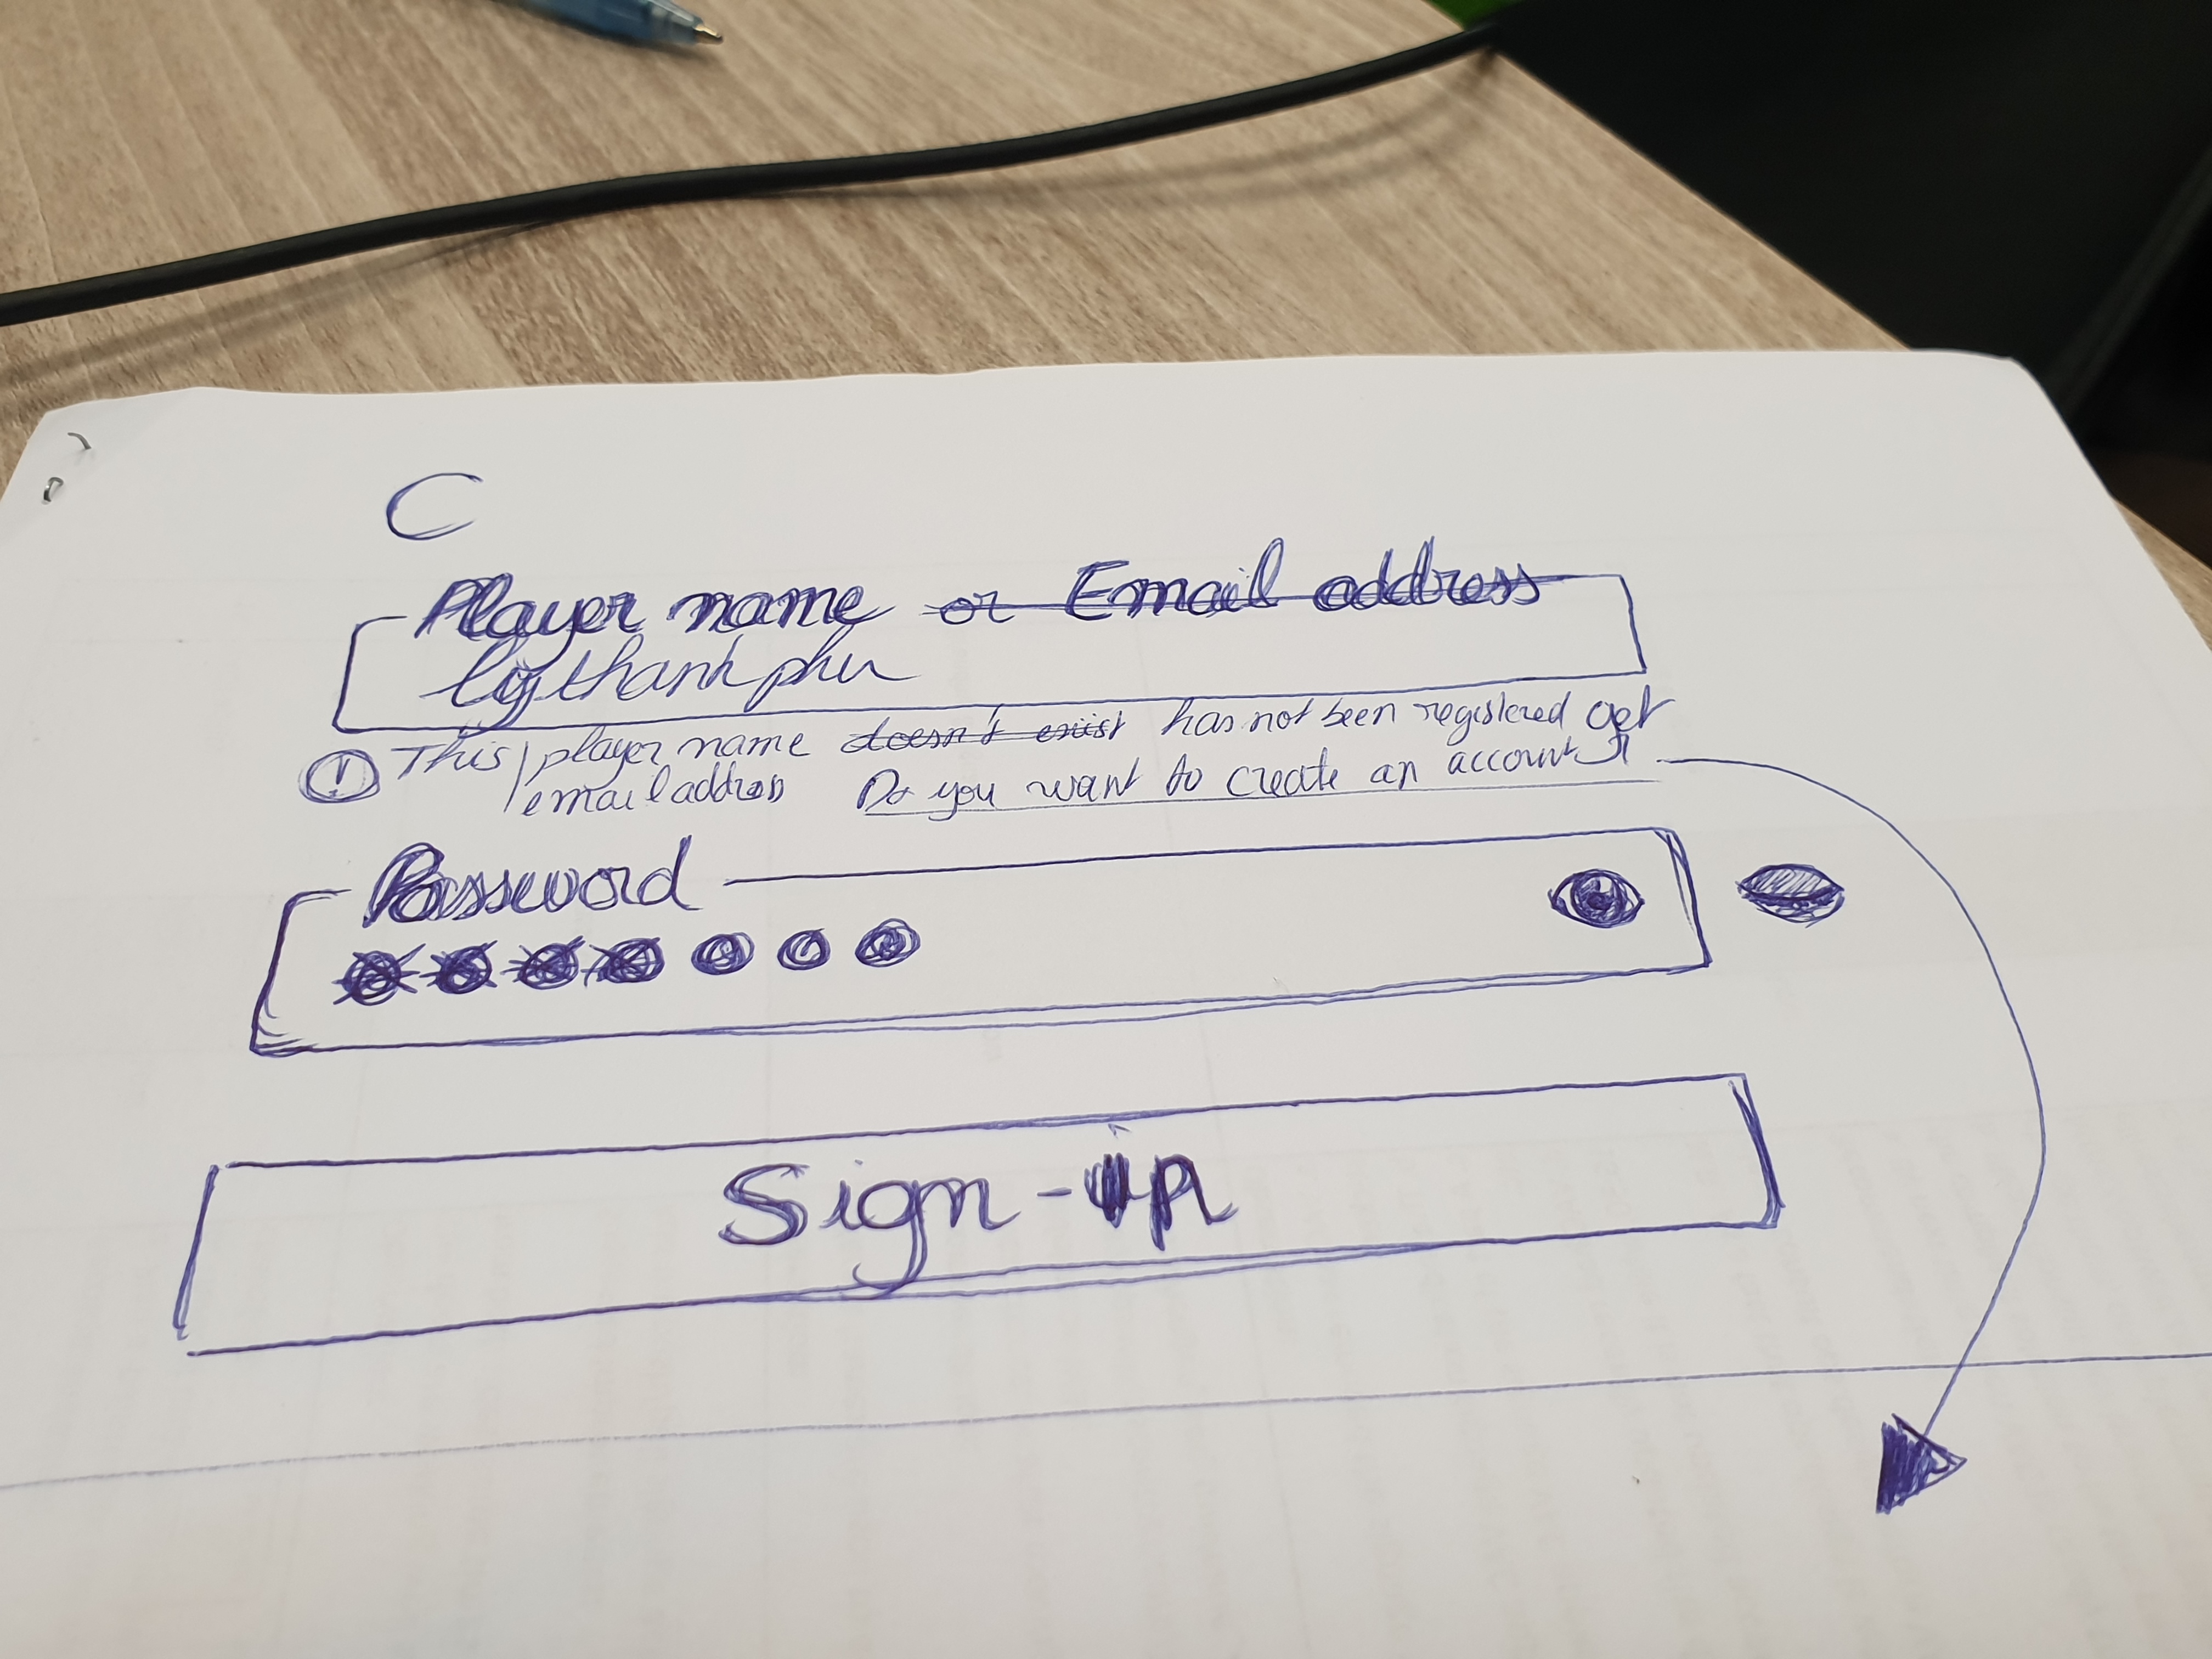 C
Player name or Email address
lythanhphu
This player name doesn't exist has not been registered yet
email address Do you want to create an account?
Password
Sign-in